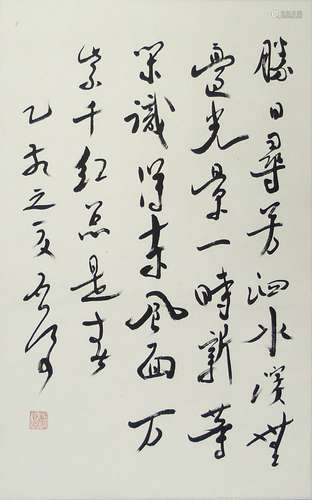 勝日尋芳泗水濱無
邊光景一時新等
閑識得東風面万
紫千紅总是春
乙亥之夏